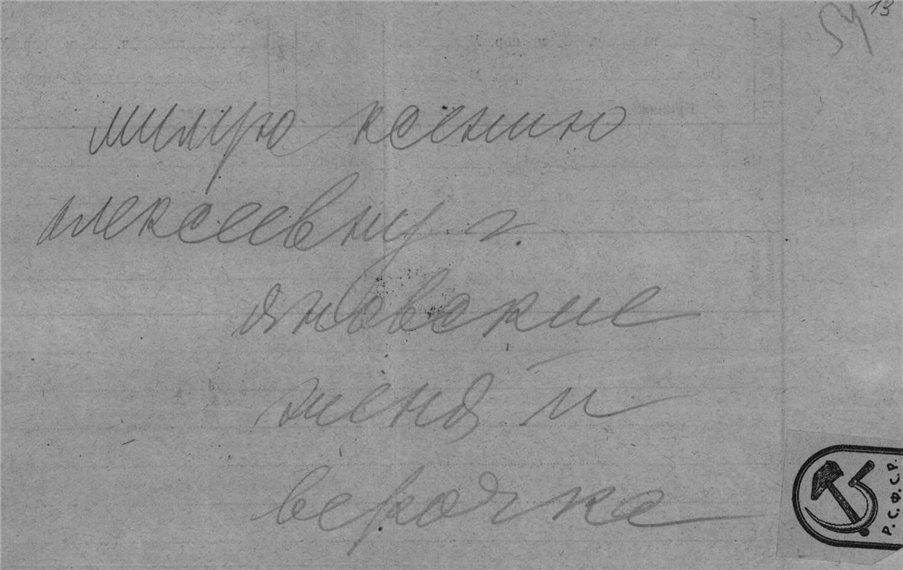 54 13
милую ксению
алексеевну г.
яновские
женя и
верочка
Р.С.Ф.С.Р.